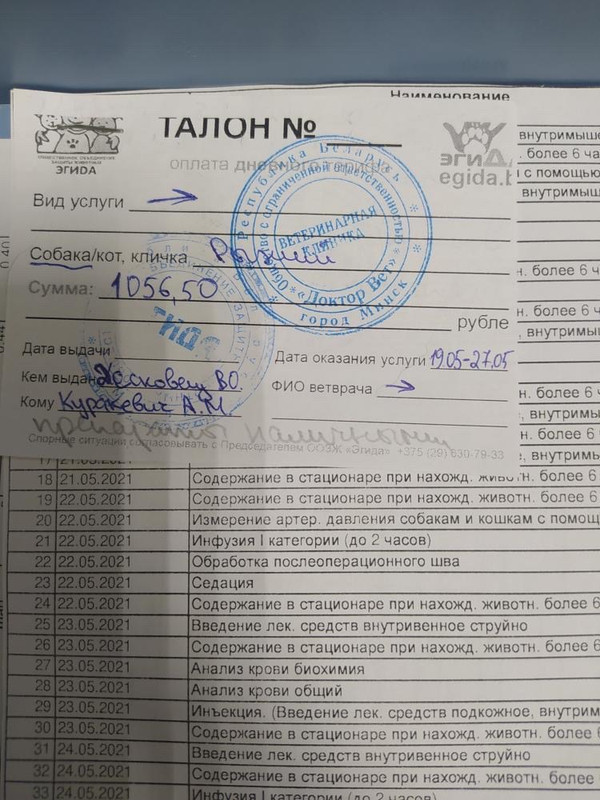 Наименование
ТАЛОН №
ОБЩЕСТВЕННОЕ ОБЪЕДИНЕНИЕ
ЗАЩИТЫ ЖИВОТНЫХ
ЭГИДА
оплата дневного
ЭГИДА
egida.b
Вид услуги →
Собака/кот, кличка Рыжий
Сумма: 1056,50
рубле
Дата выдачи
Дата оказания услуги 19.05-27.05
Кем выдан В.О.
ФИО ветврача →
Кому Куркевич А.М
препараты наличными
Спорные ситуации согласовывать с Председателем ООЗЖ «Эгида» +375 (29) 630-79-33
Республика Беларусь
с ограниченной ответственностью
ВЕТЕРИНАРНАЯ
КЛИНИКА
«Доктор Вет»
город Минск
внутримыше
. более 6 ча
с помощью
внутримыш
н. более 6
н. более 6 ч
, внутримы
н. более 6
, внутримы
н. более 6
, внутримы
17 21.05.2021
18 21.05.2021 Содержание в стационаре при нахожд. животн. более 6
19 22.05.2021 Содержание в стационаре при нахожд. животн. более 6
20 22.05.2021 Измерение артер. давления собакам и кошкам с помощ
21 22.05.2021 Инфузия I категории (до 2 часов)
22 22.05.2021 Обработка послеоперационного шва
23 22.05.2021 Седация
24 22.05.2021 Содержание в стационаре при нахожд. животн. более 6
25 23.05.2021 Введение лек. средств внутривенное струйно
26 23.05.2021 Содержание в стационаре при нахожд. животн. более 6
27 23.05.2021 Анализ крови биохимия
28 23.05.2021 Анализ крови общий
29 23.05.2021 Инъекция. (Введение лек. средств подкожное, внутрим
30 23.05.2021 Содержание в стационаре при нахожд. животн. более 6
31 24.05.2021 Введение лек. средств внутривенное струйно
32 24.05.2021 Содержание в стационаре при нахожд. животн. более 6
33 24.05.2021 Инфузия I категории (до 2 часов)